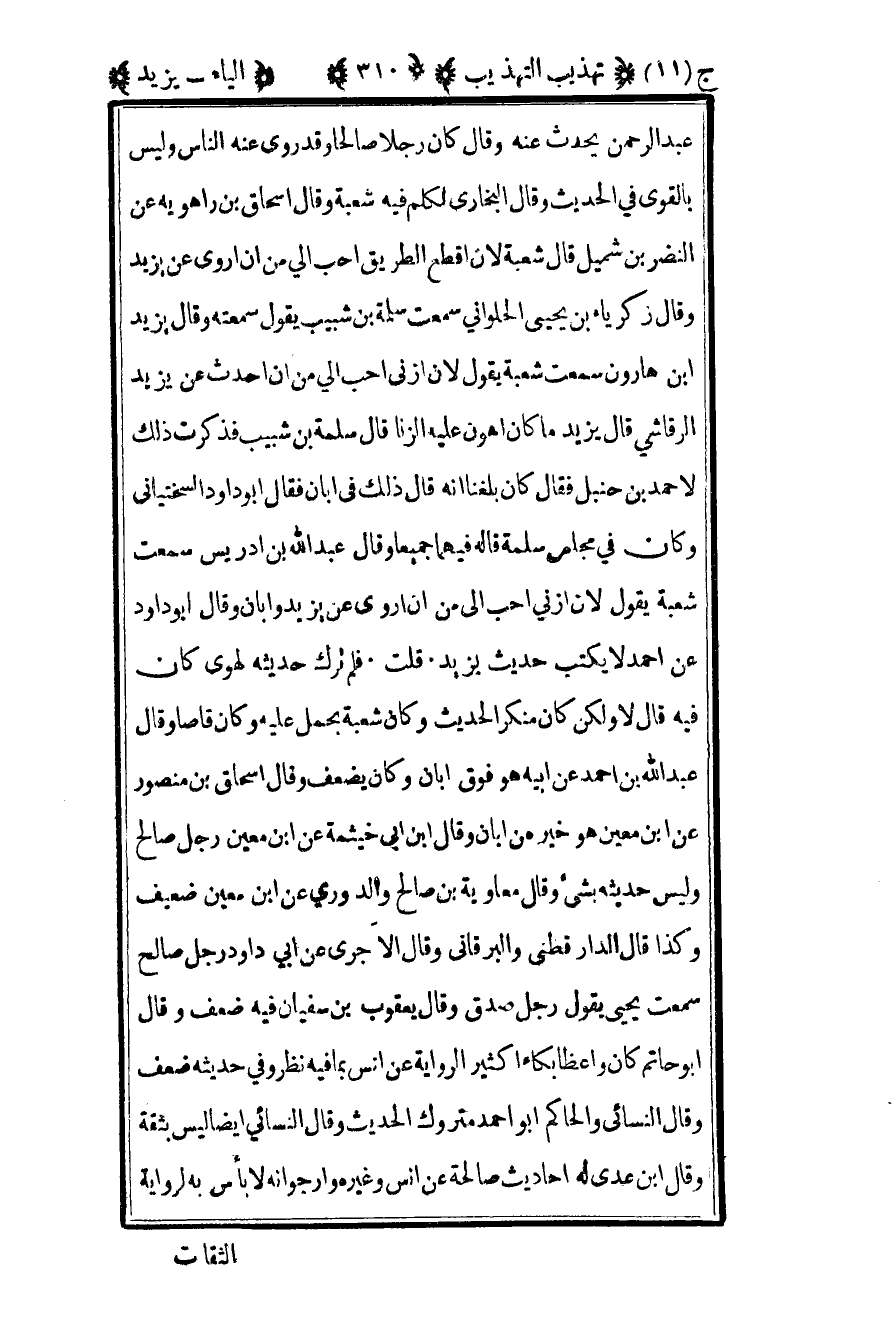 ج (١١) تهذيب التهذيب ٣١٠ الياء ـ يزيد
عبدالرحمن يحدث عنه وقال كان رجلا صالحا وقد روى عنه الناس وليس
بالقوى في الحديث وقال البخارى تكلم فيه شعبة وقال اسحاق بن راهويه عن
النضر بن شميل قال شعبة لان اقطع الطريق احب الي من ان اروى عن يزيد
وقال زكرياء بن يحيى الحلواني سمعت سلمة بن شبيب يقول سمعته وقال يزيد
ابن هارون سمعت شعبة يقول لان ازنى احب الي من ان احدث عن يزيد
الرقاشي قال يزيد ما كان اهون عليه الزنا قال سلمة بن شبيب فذكرت ذلك
لاحمد بن حنبل فقال كان بلغنا انه قال ذلك فى ابان فقال ابو داود السختيانى
وكان في مجلس سلمة قاله فيهما جميعا وقال عبد الله بن ادريس سمعت
شعبة يقول لان ازني احب الى من ان اروى عن يزيد وابان وقال ابو داود
عن احمد لا يكتب حديث يزيد . قلت . فلم ترك حديثه لهوى كان
فيه قال لا ولكن كان منكر الحديث وكان شعبة يحمل عليه وكان قاصا وقال
عبد الله بن احمد عن ابيه هو فوق ابان وكان يضعف وقال اسحاق بن منصور
عن ابن معين هو خير من ابان وقال ابن ابي خيثمة عن ابن معين رجل صالح
وليس حديثه بشئ وقال معاوية بن صالح والدوري عن ابن معين ضعيف
وكذا قال الدار قطنى والبرقانى وقال الآجرى عن ابي داود رجل صالح
سمعت يحيى يقول رجل صدق وقال يعقوب بن سفيان فيه ضعف وقال
ابو حاتم كان واعظا بكاء اكثير الرواية عن انس بما فيه نظر وفي حديثه ضعف
وقال النسائى والحاكم ابو احمد متروك الحديث وقال النسائي ايضا ليس بثقة
وقال ابن عدى له احاديث صالحة عن انس وغيره وارجو انه لا بأس به لرواية
الثقات